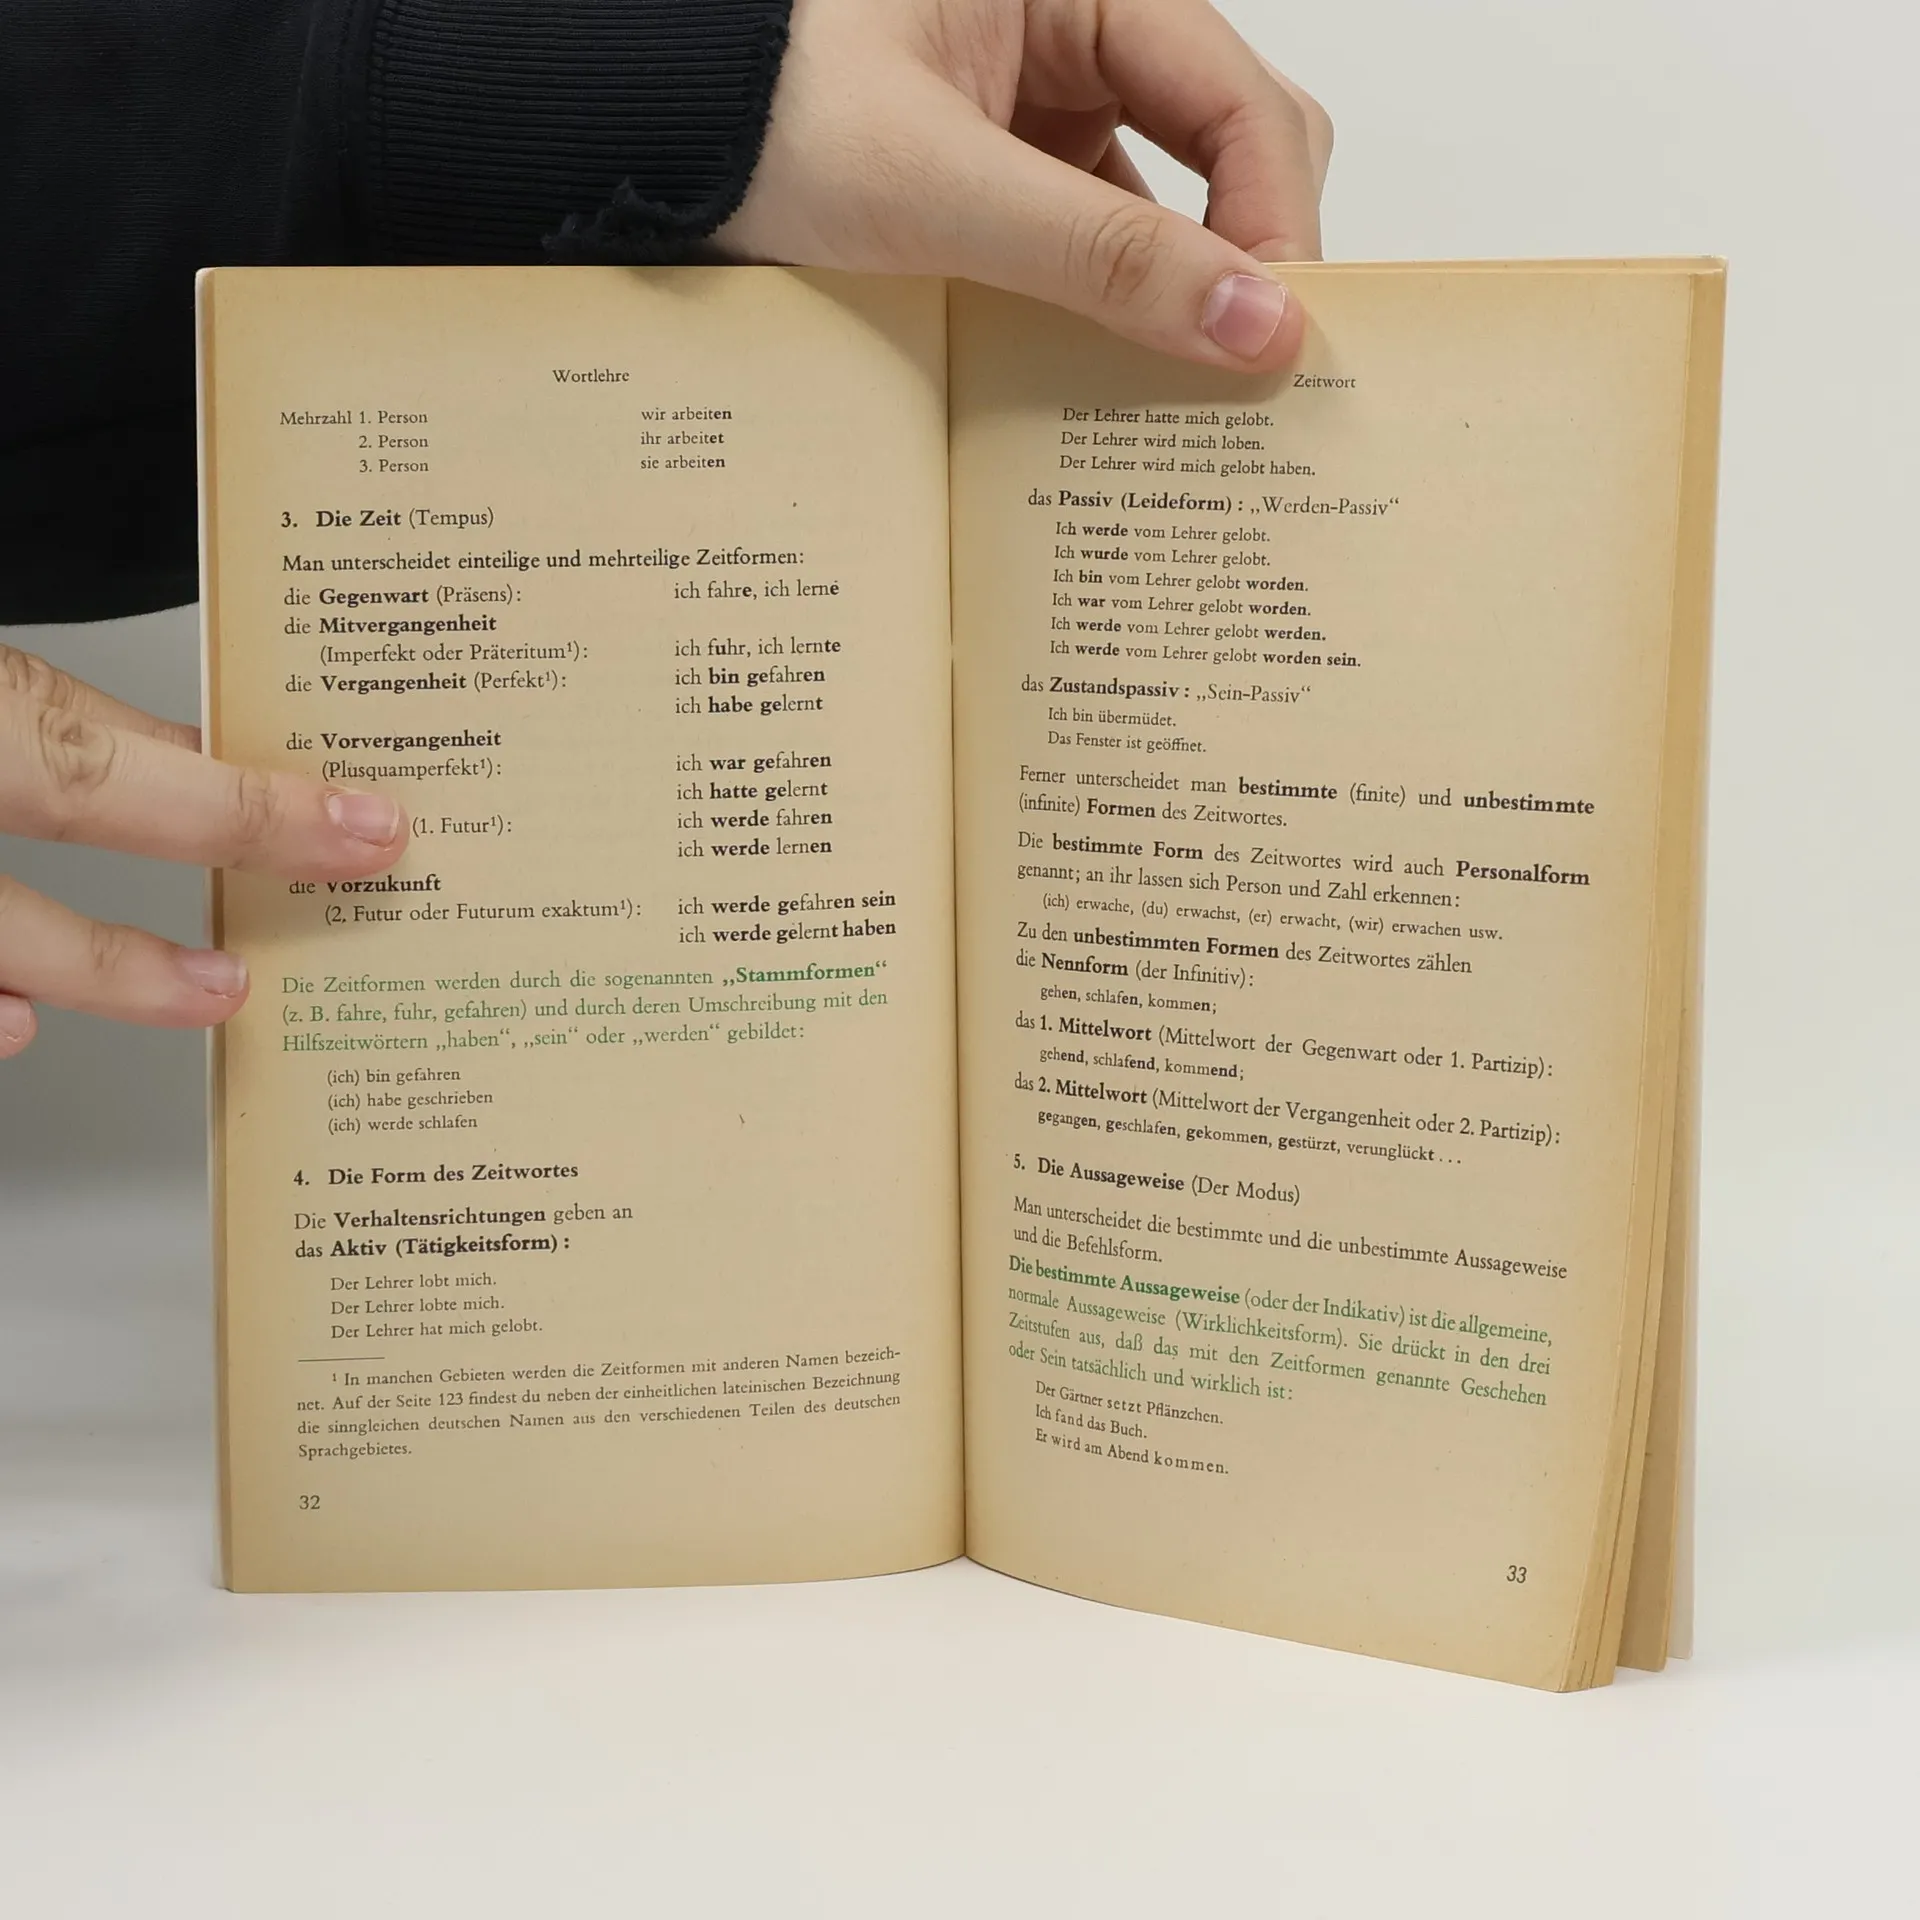 Wortlehre
Mehrzahl 1. Person wir arbeiten
2. Person ihr arbeitet
3. Person sie arbeiten
3. Die Zeit (Tempus)
Man unterscheidet einteilige und mehrteilige Zeitformen:
die Gegenwart (Präsens): ich fahre, ich lerne
die Mitvergangenheit
(Imperfekt oder Präteritum¹): ich fuhr, ich lernte
die Vergangenheit (Perfekt¹): ich bin gefahren
ich habe gelernt
die Vorvergangenheit
(Plusquamperfekt¹): ich war gefahren
ich hatte gelernt
(1. Futur¹): ich werde fahren
ich werde lernen
die Vorzukunft
(2. Futur oder Futurum exaktum¹): ich werde gefahren sein
ich werde gelernt haben
Die Zeitformen werden durch die sogenannten „Stammformen“
(z. B. fahre, fuhr, gefahren) und durch deren Umschreibung mit den
Hilfszeitwörtern „haben“, „sein“ oder „werden“ gebildet:
(ich) bin gefahren
(ich) habe geschrieben
(ich) werde schlafen
4. Die Form des Zeitwortes
Die Verhaltensrichtungen geben an
das Aktiv (Tätigkeitsform):
Der Lehrer lobt mich.
Der Lehrer lobte mich.
Der Lehrer hat mich gelobt.
¹ In manchen Gebieten werden die Zeitformen mit anderen Namen bezeich-
net. Auf der Seite 123 findest du neben der einheitlichen lateinischen Bezeichnung
die sinngleichen deutschen Namen aus den verschiedenen Teilen des deutschen
Sprachgebietes.
32
Zeitwort
Der Lehrer hatte mich gelobt.
Der Lehrer wird mich loben.
Der Lehrer wird mich gelobt haben.
das Passiv (Leideform): „Werden-Passiv“
Ich werde vom Lehrer gelobt.
Ich wurde vom Lehrer gelobt.
Ich bin vom Lehrer gelobt worden.
Ich war vom Lehrer gelobt worden.
Ich werde vom Lehrer gelobt werden.
Ich werde vom Lehrer gelobt worden sein.
das Zustandspassiv: „Sein-Passiv“
Ich bin übermüdet.
Das Fenster ist geöffnet.
Ferner unterscheidet man bestimmte (finite) und unbestimmte
(infinite) Formen des Zeitwortes.
Die bestimmte Form des Zeitwortes wird auch Personalform
genannt; an ihr lassen sich Person und Zahl erkennen:
(ich) erwache, (du) erwachst, (er) erwacht, (wir) erwachen usw.
Zu den unbestimmten Formen des Zeitwortes zählen
die Nennform (der Infinitiv):
gehen, schlafen, kommen;
das 1. Mittelwort (Mittelwort der Gegenwart oder 1. Partizip):
gehend, schlafend, kommend;
das 2. Mittelwort (Mittelwort der Vergangenheit oder 2. Partizip):
gegangen, geschlafen, gekommen, gestürzt, verunglückt ...
5. Die Aussageweise (Der Modus)
Man unterscheidet die bestimmte und die unbestimmte Aussageweise
und die Befehlsform.
Die bestimmte Aussageweise (oder der Indikativ) ist die allgemeine,
normale Aussageweise (Wirklichkeitsform). Sie drückt in den drei
Zeitstufen aus, daß das mit den Zeitformen genannte Geschehen
oder Sein tatsächlich und wirklich ist:
Der Gärtner setzt Pflänzchen.
Ich fand das Buch.
Er wird am Abend kommen.
33